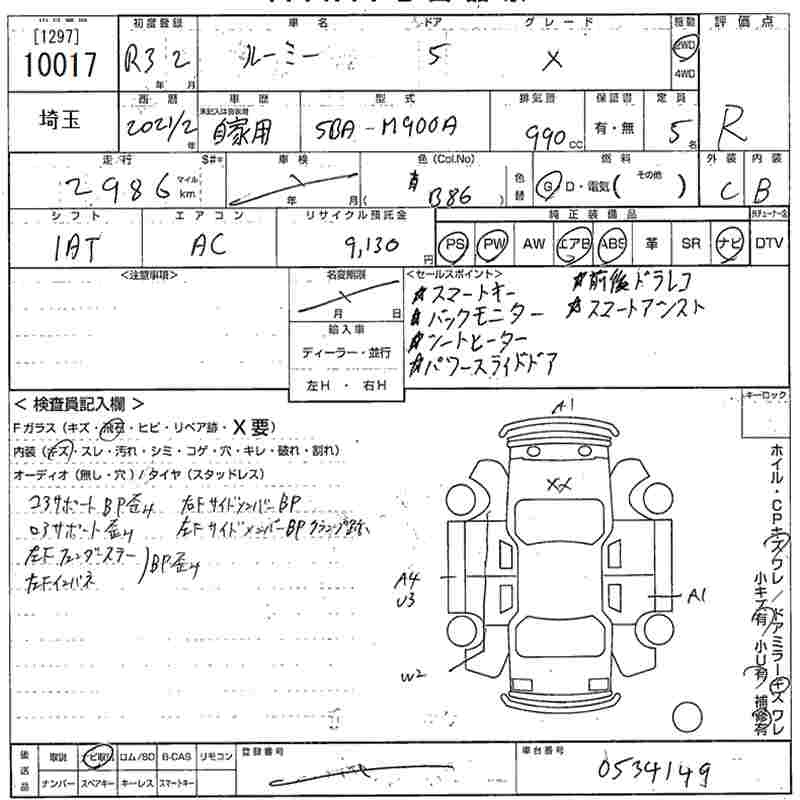 [1297]
10017
埼玉
初度登録
R3 2
年 月
車名
ルーミー
ドア
5
グレード
X
駆動
2WD
4WD
評価点
R
西暦
2021/2
年
車歴
未記入は自家用
自家用
型式
5BA-M900A
排気量
990 cc
保証書
有・無
定員
5名
走行
2986
マイル
km
S#*
車検
年 月
色(Col.No)
B86
色替
燃料
G D・電気( その他 )
外装
C
内装
B
シフト
IAT
エアコン
AC
リサイクル預託金
9,130円
純正装備品
PS PW AW エアB ABS 革 SR ナビ DTV
<注意事項>
名変期限
月 日
輸入車
ディーラー・並行
左H ・ 右H
<セールスポイント>
☆スマートキー
☆バックモニター
☆シートヒーター
☆パワースライドドア
☆前後ドラレコ
☆スマートアシスト
< 検査員記入欄 >
Fガラス(キズ・飛石・ヒビ・リペア跡・X要)
内装(キズ・スレ・汚れ・シミ・コゲ・穴・キレ・破れ・割れ)
オーディオ(無し・穴)/タイヤ(スタッドレス)
コアサポートBP歪み
ロアサポート歪み
左Fフェンダーステー
左Fインパネ
BP歪み
右FサイドメンバーBP
左FサイドメンバーBP クランプ跡
キーロック
A1
XX
A4
U3
W2
A1
ホイル・CPキズワレ/ドアミラーキズワレ
小キズ有/小U有/補修有
後送品
取説 ナビ取説 ロム/SD B-CAS リモコン
ナンバー スペアキー キーレス スマートキー
登録番号
車台番号
0534149